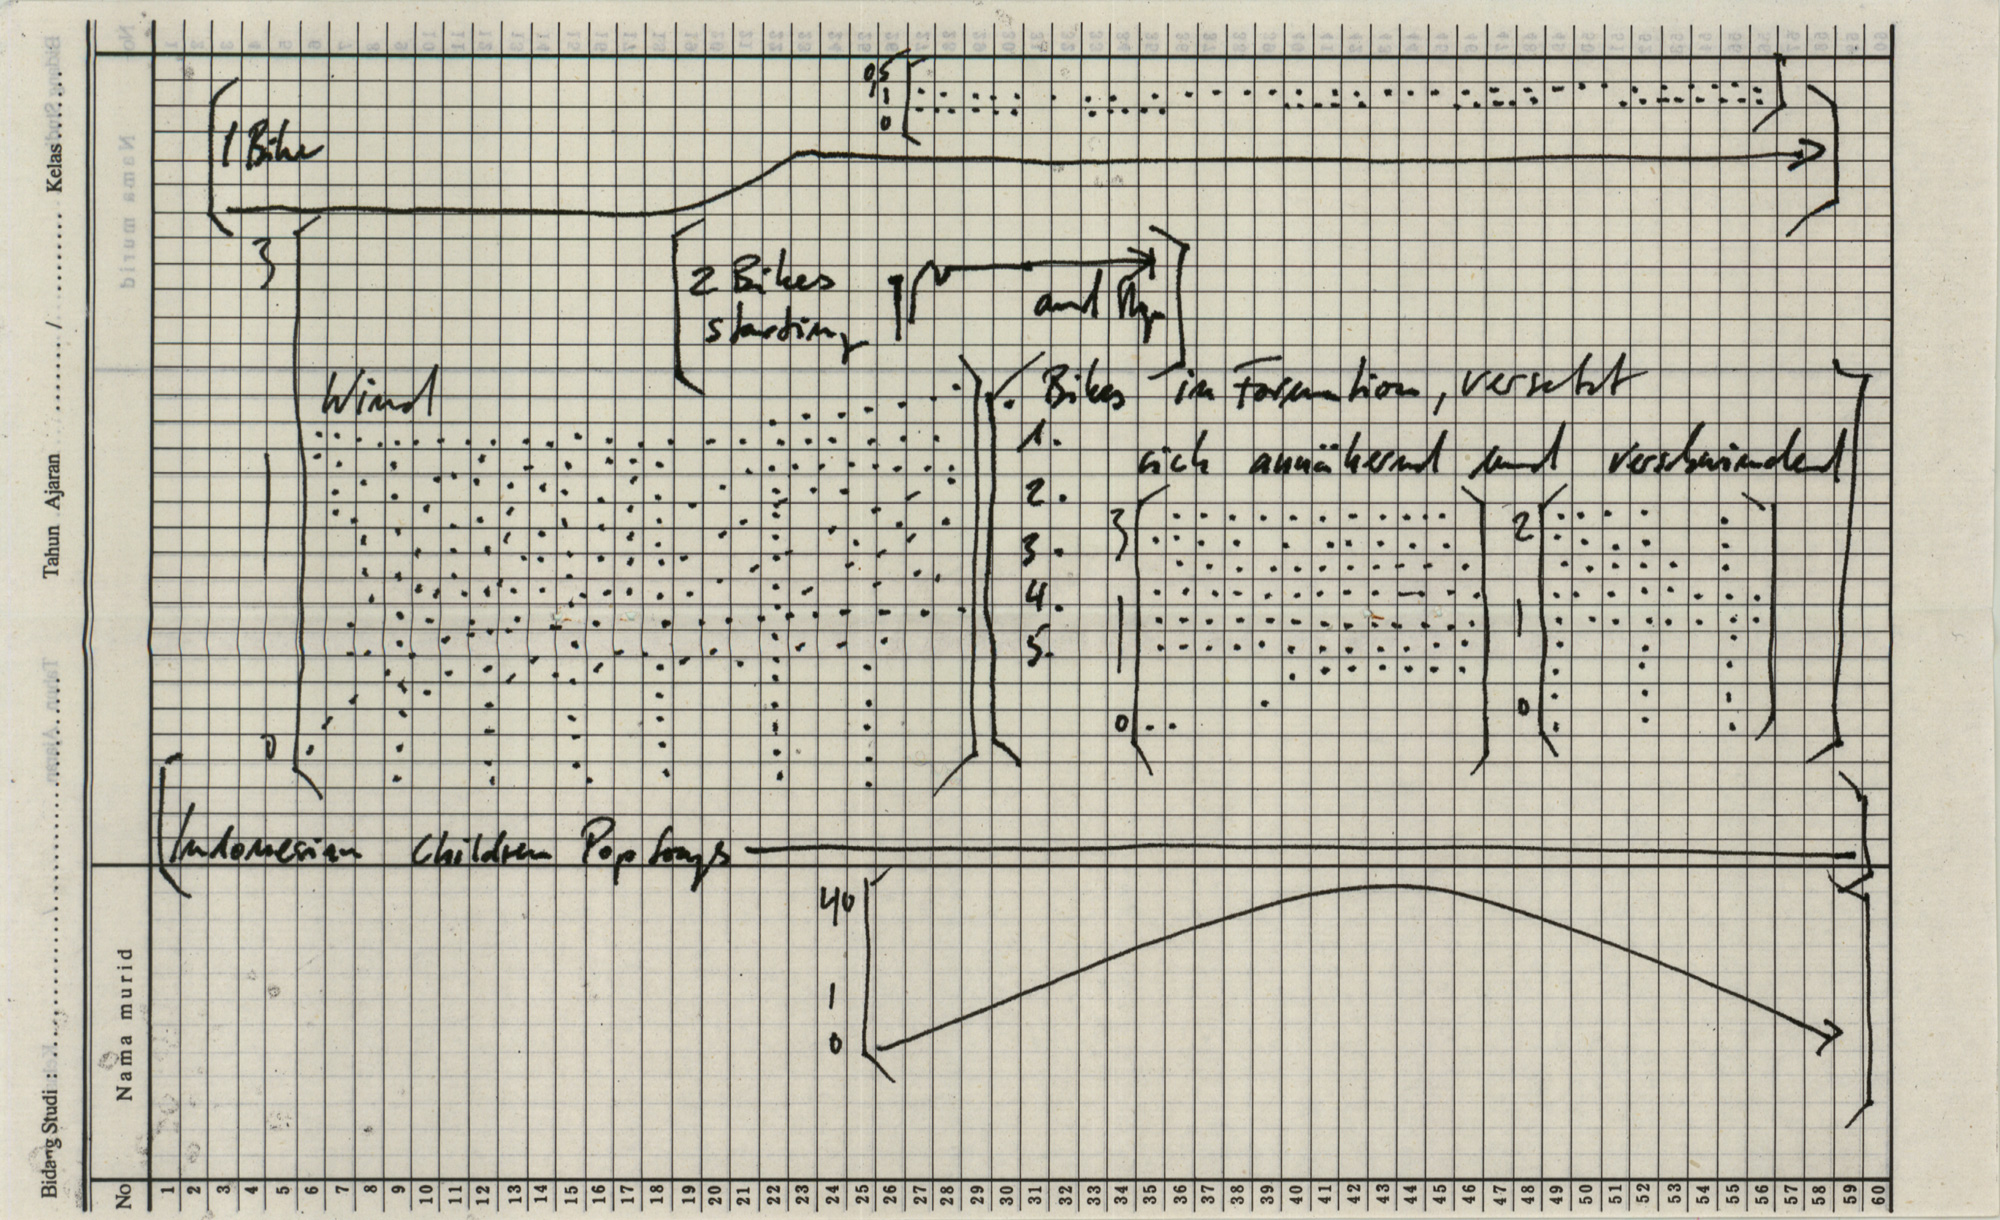 0,5
-
0
1 Bike
3
0
2 Bikes
starting
and
Wind
Bikes in Formation, versetzt
sich annähernd und verschwindend
1.
2.
3.
4.
5.
3
0
2
0
Indonesian Children Pop Songs
40
0
Bidang Studi :
Tahun Ajaran / Kelas
No
Nama murid
1 2 3 4 5 6 7 8 9 10 11 12 13 14 15 16 17 18 19 20 21 22 23 24 25 26 27 28 29 30 31 32 33 34 35 36 37 38 39 40 41 42 43 44 45 46 47 48 49 50 51 52 53 54 55 56 57 58 59 60